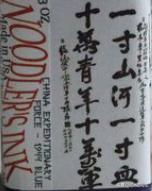 3 OZ.
Made in US
NOODLER'S INK
CHINA EXPEDITIONARY
FORCE - 1944 BLUE
一寸山河一寸血
十萬青年十萬軍